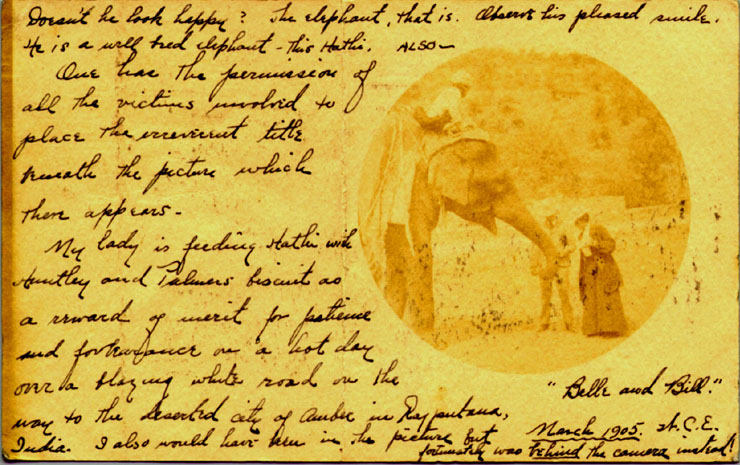 Doesn't he look happy? The elephant, that is. Observe his pleased smile.
He is a well bred elephant - this Hathi. ALSO -
One has the permission of
all the victims involved to
place the irreverent title
beneath the picture which
there appears -
My lady is feeding Hathi with
Huntley and Palmers biscuit as
a reward of merit for patience
and forbearance on a hot day
over a blazing white road on the
way to the deserted city of Amber in Rajputana,
India. I also would have been in the picture but
fortunately was behind the camera instead!
"Belle and Bill."
March 1905. H.C.E.